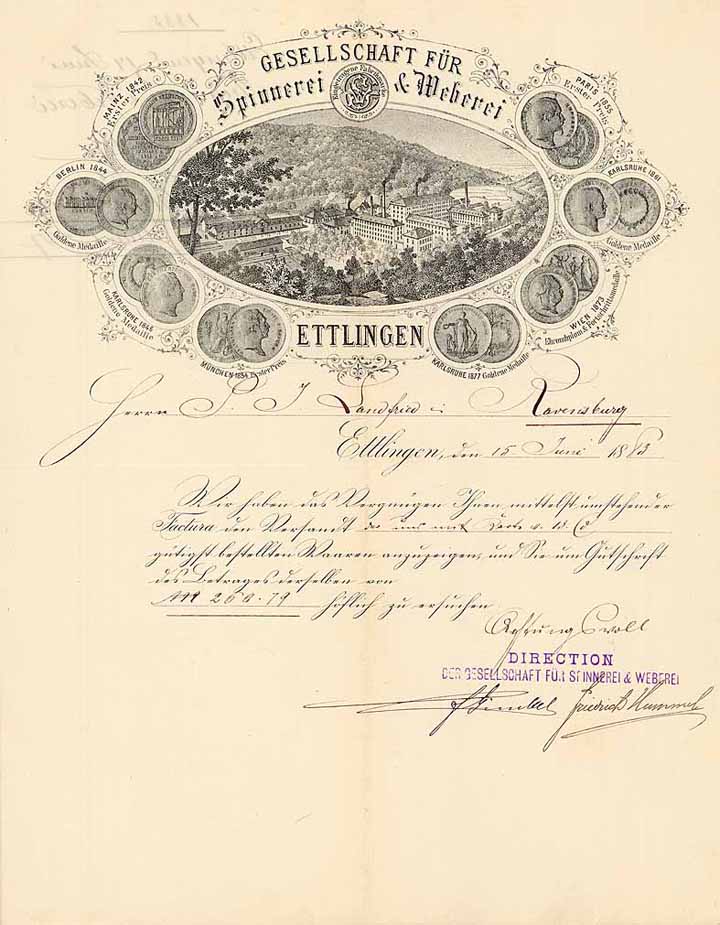 GESELLSCHAFT FÜR
Spinnerei & Weberei
MAINZ 1842
Erster Preis
PARIS 1855
Erster Preis
BERLIN 1844
Goldene Medaille
KARLSRUHE 1861
Goldene Medaille
KARLSRUHE 1846
Goldene Medaille
WIEN 1873
Ehrendiplom & Fortschrittsmedaille
MÜNCHEN 1854 Erster Preis
KARLSRUHE 1877 Goldene Medaille
ETTLINGEN
Herrn P. J. Landfried in Ravensburg
Ettlingen, den 15 Juni 1883
Wir haben das Vergnügen Ihnen mittelst umstehender
Factura den Versandt der uns mit
gütigst bestellten Waaren anzuzeigen, und Sie um Gutschrift
des Betrages derselben von
höflich zu ersuchen
Achtungsvoll
DIRECTION
DER GESELLSCHAFT FÜR SPINNEREI & WEBEREI
Friedrich Hummel